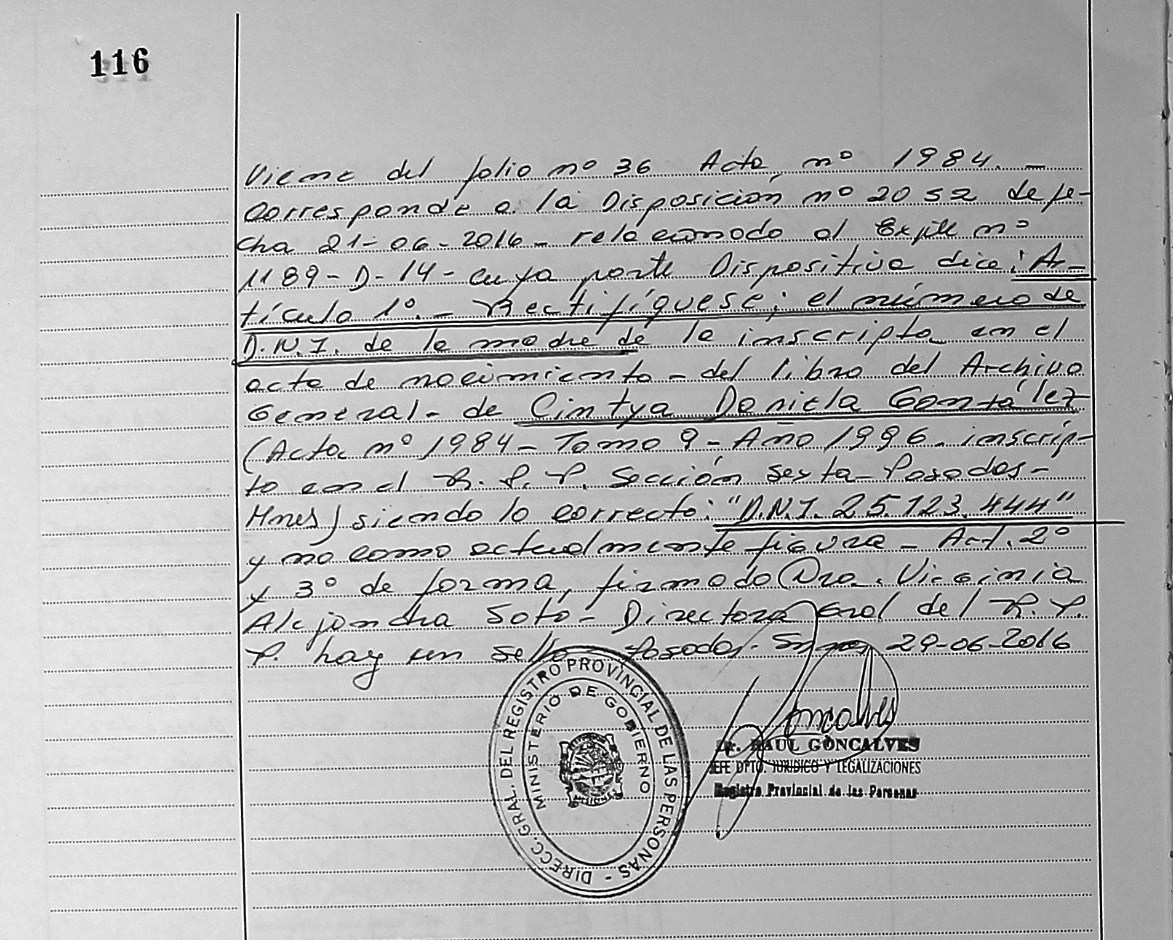 116
Viene del folio nº 36 Acta nº 1984.-
Corresponde a la Disposición nº 2052 de fe-
cha 21-06-2016- relacionado al Expte nº
1189-D-14- cuya parte Dispositiva dice: Ar-
tículo 1º.- Rectifíquese; el número de
D.N.I. de la madre de la inscripta en el
acta de nacimiento - del libro del Archivo
General- de Cintya Daniela González
(Acta nº 1984- Tomo 9- Año 1996- inscrip-
to en el R. P. P. Sección sexta- Posadas-
Mnes) siendo lo correcto: "D.N.I. 25.123.444"
y no como actualmente figura - Art. 2º
y 3º de forma, firmado Dra. Virginia
Alejandra Soto- Directora Gral del R. P.
P. hay un sello Posadas- 29-06-2016
DIRECC. GRAL. DEL REGISTRO PROVINCIAL DE LAS PERSONAS -
MINISTERIO DE GOBIERNO
MISIONES
Goncalves
Dr. RAUL GONCALVES
JEFE DPTO. JURIDICO Y LEGALIZACIONES
Registro Provincial de las Personas